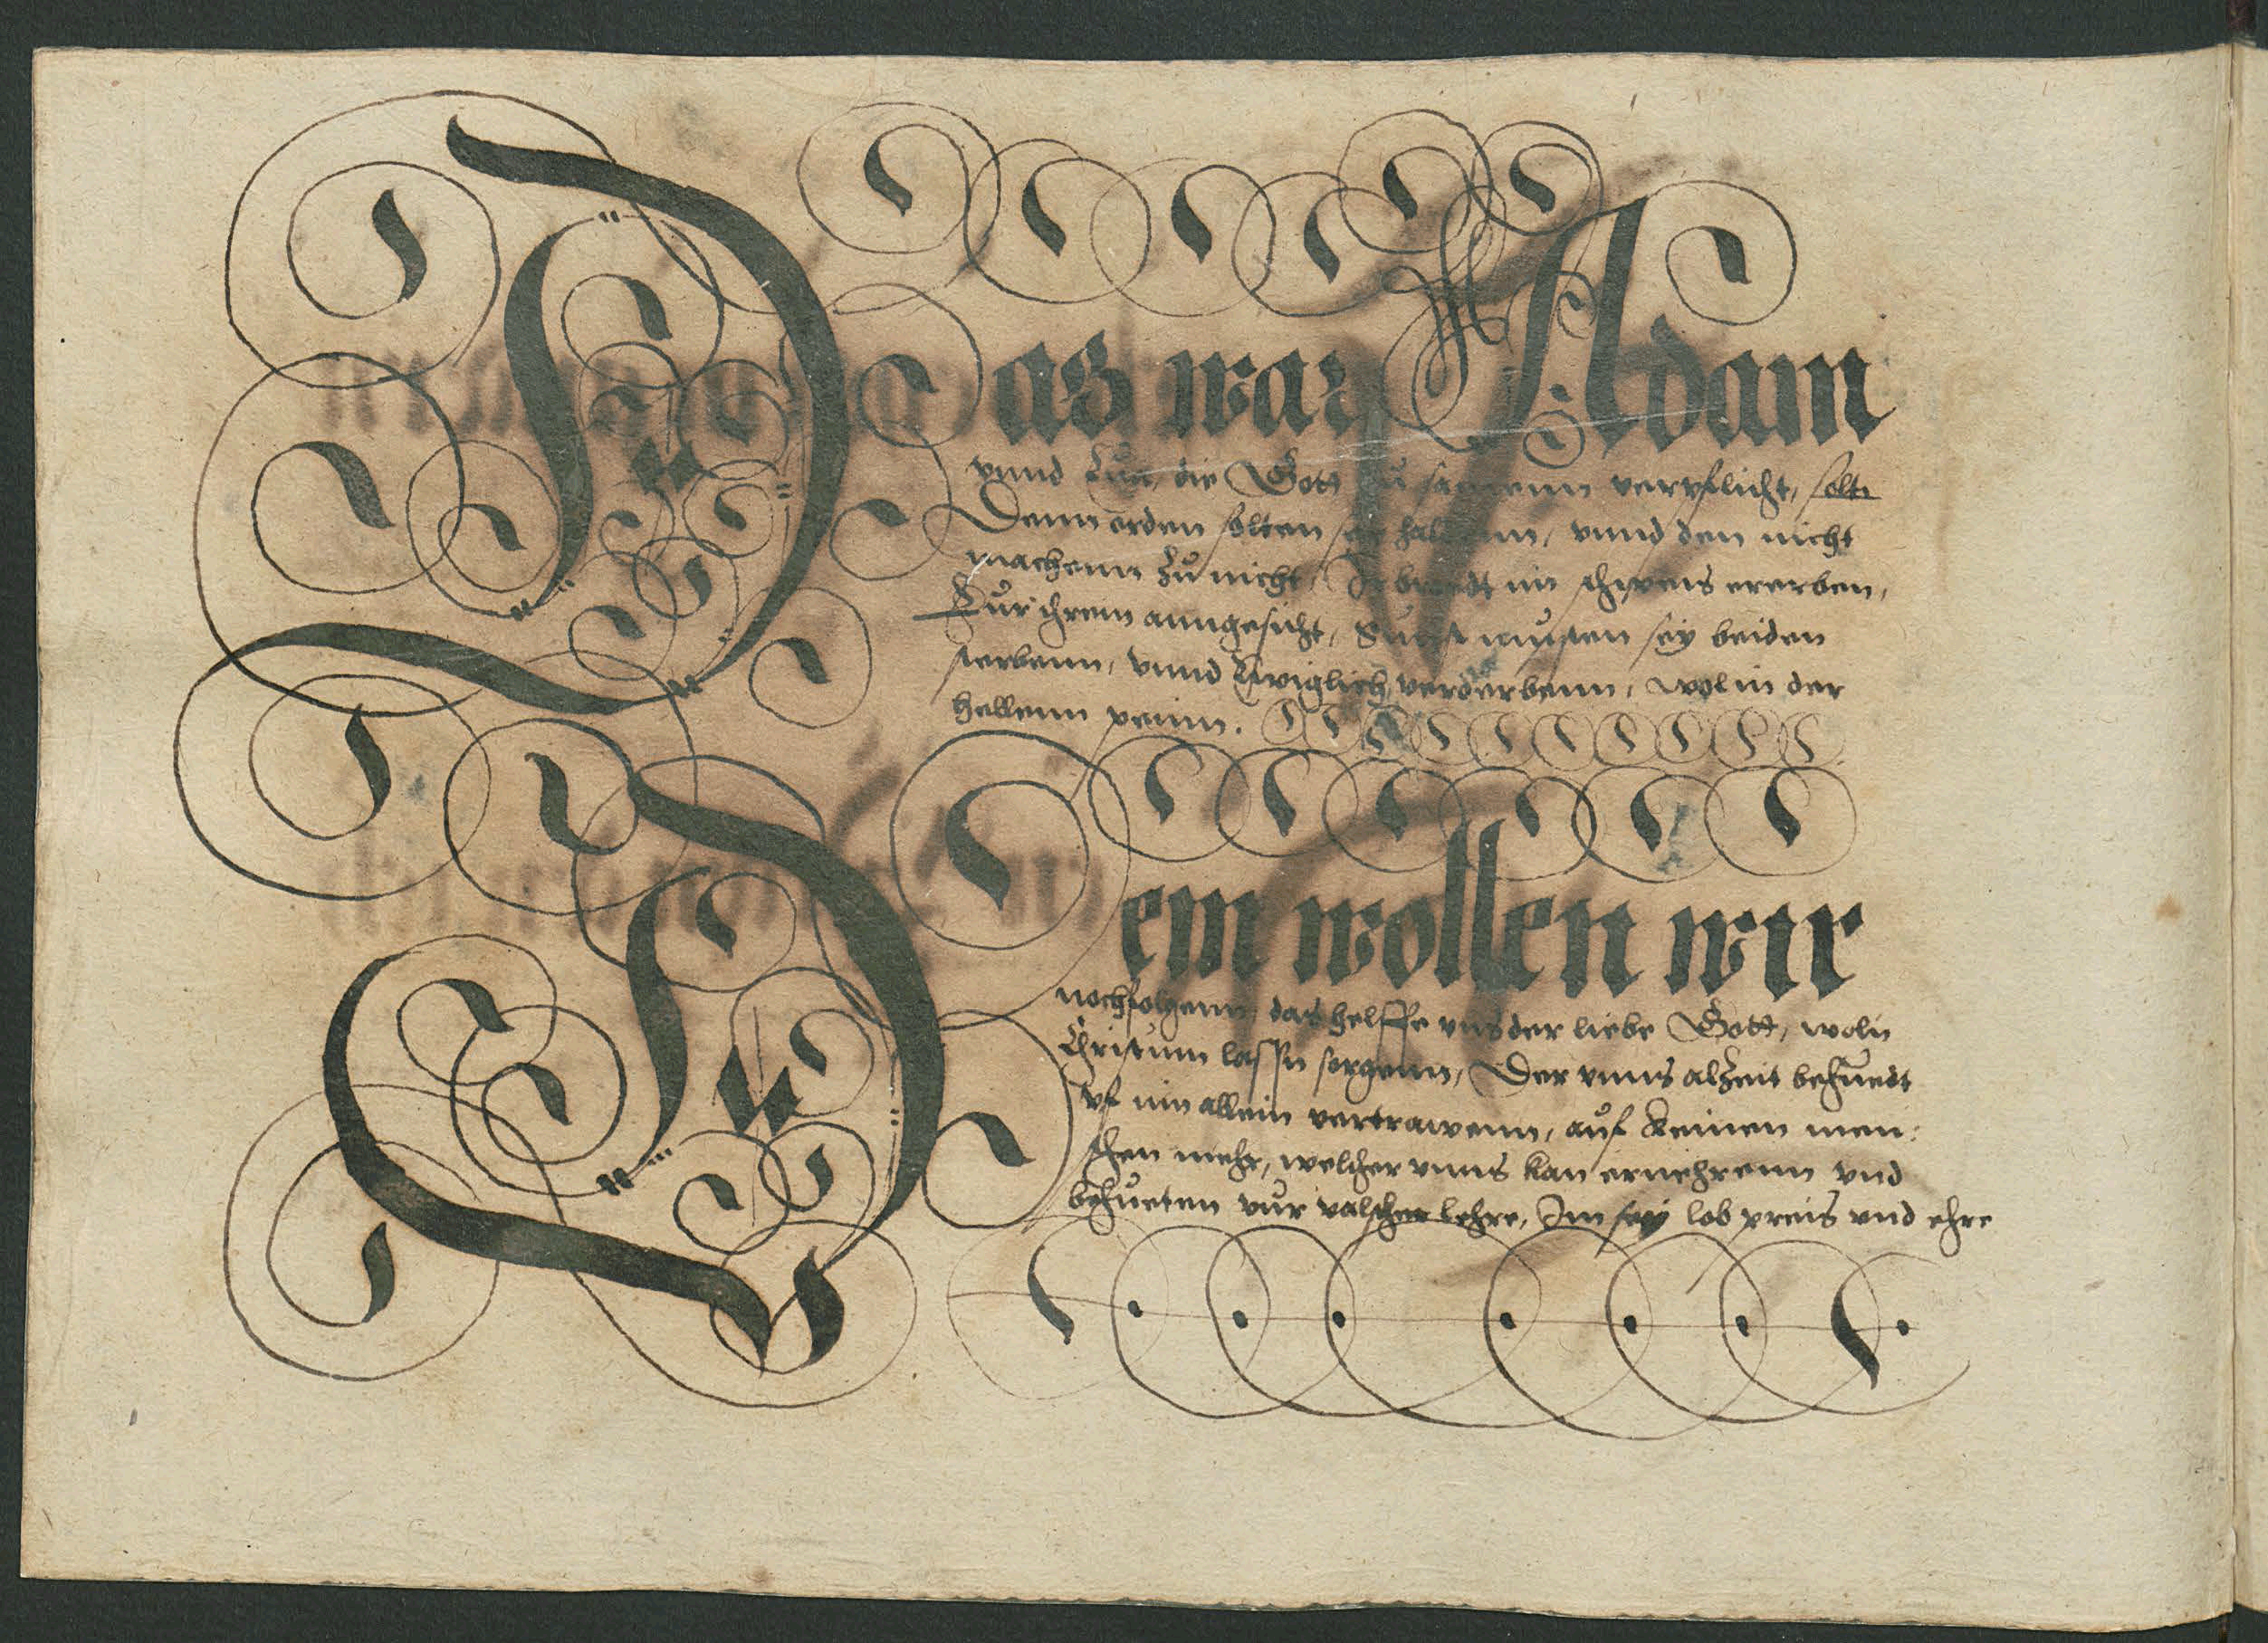 Das war Adam
vnnd Eua, die Gott zu samenn verpflicht, solt
Denn orden solten sey haltenn, vnnd den nicht
machenn zu nicht, Ir brodt im schweis ererben,
Eur ihrem anngesicht, Sunst musten sey beiden
sterbenn, vnnd Ewiglich verderbenn, wol in der
hellenn peinn.
Dem wollen wir
nochfolgenn das helffe vns der liebe Gott, woln
Christum lassn sorgenn, Der vnns alzeit behuedt
vf inn allein vertrawenn, auf keinen men:
schen mehr, welcher vnns kan ernehrenn vnd
behueten vur valscher lehre, Im sey lob preis vnd ehre